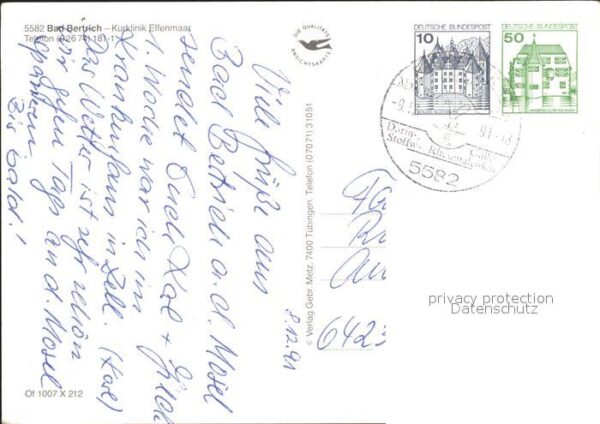 5582 Bad Bertrich – Kurklinik Elfenmaar
Telefon (0 26 74) 181-1
DIE QUALITÄTS
ANSICHTSKARTE
8.12.91
Viele Grüße aus
Bad Bertrich a. d. Mosel
sendet Euch Karl +
1. Woche war ich im
Krankenhaus in Zell. (Karl)
Das Wetter ist sehr schön
wir gehen Tags an d. Mosel
spazieren
Bis bald!
Of 1007 X 212
© Verlag Gebr. Metz, 7400 Tübingen, Telefon (07071) 31051
DEUTSCHE BUNDESPOST
10
DEUTSCHE BUNDESPOST
50
-9.1
91-18
Darm-
Stoffw-
Rheumaleiden
5582
6423
privacy protection
Datenschutz